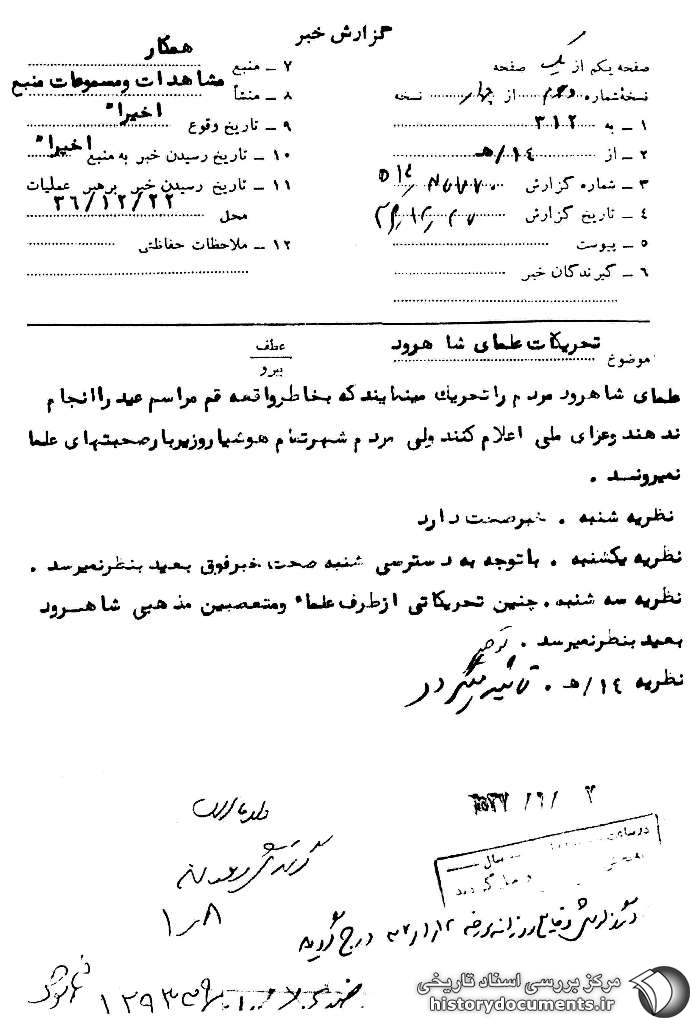 گزارش خبر
صفحه یکم از یک صفحه
نسخهٔ شماره دوم از چهار نسخه
۱ ــ به ۳۱۲
۲ ــ از ۱۴/هـ
۳ ــ شماره گزارش
۴ ــ تاریخ گزارش
۵ ــ پیوست
۶ ــ گیرندگان خبر
۷ ــ منبع همکار
۸ ــ منشأ مشاهدات و مسموعات منبع
۹ ــ تاریخ وقوع اخیراً
۱۰ ــ تاریخ رسیدن خبر به منبع اخیراً
۱۱ ــ تاریخ رسیدن خبر برهبر عملیات
محل ۳۶/۱۲/۲۲
۱۲ ــ ملاحظات حفاظتی
موضوع تحریکات علمای شاهرود
عطف
پیرو
علمای شاهرود مردم را تحریک مینمایند که بخاطر واقعه قم مراسم عید را انجام
ندهند و عزای ملی اعلام کنند ولی مردم شهر تمام هوشیار و زیربار صحبتهای علما
نمیروند .
نظریه شنبه . خبر صحت دارد
نظریه یکشنبه . با توجه به دسترسی شنبه صحت خبر فوق بعید بنظر نمیرسد .
نظریه سه شنبه . چنین تحریکاتی از طرف علماء و متعصبین مذهبی شاهرود
بعید بنظر نمیرسد .
نظریه ۱۴/هـ . تائید میگردد
در ساعت
سال
در گزارش وقایع روزانه مورخه درج گردید
مرکز بررسی اسناد تاریخی
historydocuments.ir